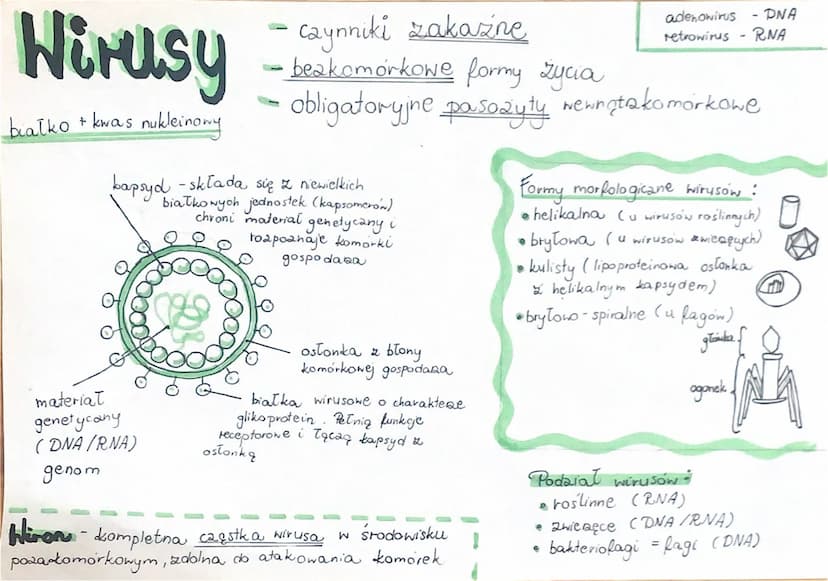 Wirusy
białko + kwas nukleinowy
- czynniki zakaźne
- bezkomórkowe formy życia
- obligatoryjne pasożyty wewnątrzkomórkowe
adenowirus - DNA
retrowirus - RNA
kapsyd - składa się z niewielkich
białkowych jednostek (kapsomerów)
chroni materiał genetyczny i
rozpoznaje komórki
gospodarza
osłonka z błony
komórkowej gospodarza
białka wirusowe o charakterze
glikoprotein. Pełnią funkcje
receptorowe i łączą kapsyd z
osłonką
materiał
genetyczny
(DNA/RNA)
genom
Wirion - kompletna cząstka wirusa w środowisku
pozakomórkowym, zdolna do atakowania komórek
Formy morfologiczne wirusów:
• helikalna (u wirusów roślinnych)
• bryłowa (u wirusów zwierzęcych)
• kulisty (lipoproteinowa osłonka
z helikalnym kapsydem)
• bryłowo-spiralne (u fagów)
główka
ogonek
Podział wirusów:
• roślinne (RNA)
• zwierzęce (DNA/RNA)
• bakteriofagi = fagi (DNA)